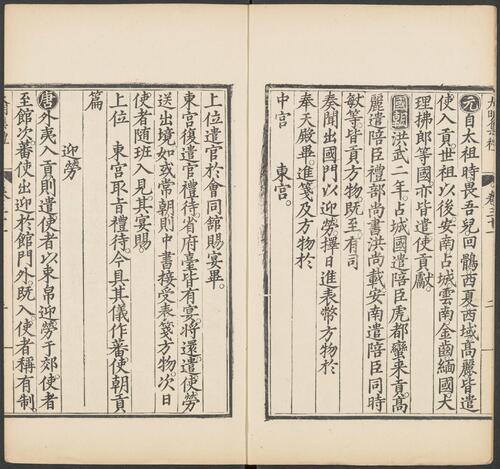 元自太祖時畏吾兒回鶻西夏西域高麗皆遣
使入貢世祖以後安南占城雲南金齒緬國大
理拂郎等國亦皆遣使貢獻
國朝洪武二年占城國遣臣虎都蠻來貢高
麗遣陪臣禮部尚書洪尚載安南遣陪臣同時
敏等皆貢方物既至有司
奏聞出國門以迎勞擇日進表幣方物於
奉天殿畢進箋及方物於
中宮　東宮
上位遣官於會同館賜宴畢
東宮復遣官禮待省府臺皆有宴將還遣使勞
送出境如或常朝則中書接受表箋方物次日
使者隨班入見其宴賜
上位　東宮取旨禮待今具其儀作蕃使朝貢
篇
迎勞
唐外夷入貢則遣使者以束帛迎勞于郊使者
至館次蕃使出迎於館門外既入使者稱有制